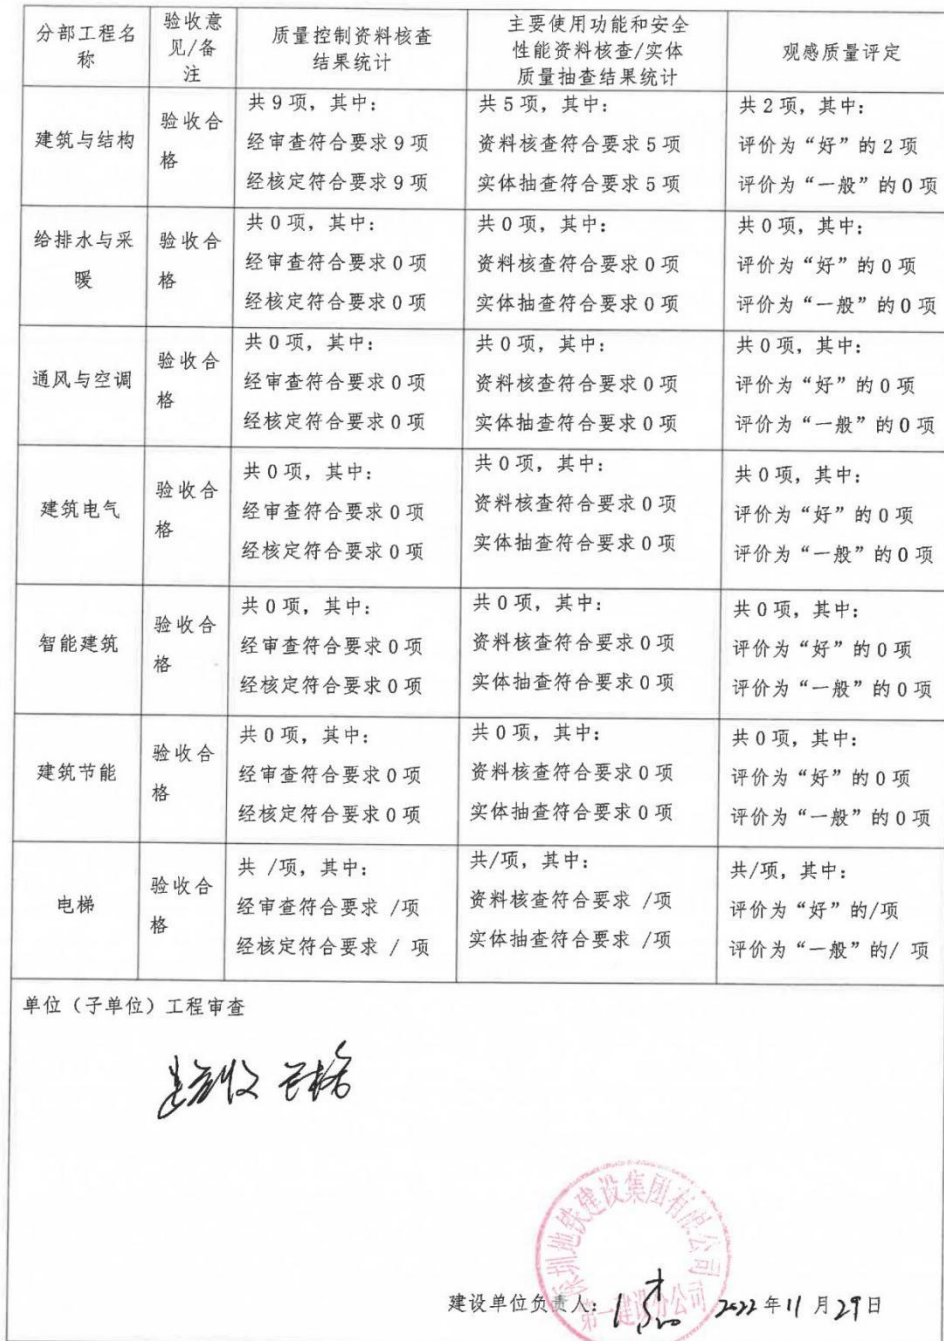 分部工程名
称
验收意
见/备
注
质量控制资料核查
结果统计
主要使用功能和安全
性能资料核查/实体
质量抽查结果统计
观感质量评定
建筑与结构
验收合
格
共9项，其中：
经审查符合要求9项
经核定符合要求9项
共5项，其中：
资料核查符合要求5项
实体抽查符合要求5项
共2项，其中：
评价为“好”的2项
评价为“一般”的0项
给排水与采
暖
验收合
格
共0项，其中：
经审查符合要求0项
经核定符合要求0项
共0项，其中：
资料核查符合要求0项
实体抽查符合要求0项
共0项，其中：
评价为“好”的0项
评价为“一般”的0项
通风与空调
验收合
格
共0项，其中：
经审查符合要求0项
经核定符合要求0项
共0项，其中：
资料核查符合要求0项
实体抽查符合要求0项
共0项，其中：
评价为“好”的0项
评价为“一般”的0项
建筑电气
验收合
格
共0项，其中：
经审查符合要求0项
经核定符合要求0项
共0项，其中：
资料核查符合要求0项
实体抽查符合要求0项
共0项，其中：
评价为“好”的0项
评价为“一般”的0项
智能建筑
验收合
格
共0项，其中：
经审查符合要求0项
经核定符合要求0项
共0项，其中：
资料核查符合要求0项
实体抽查符合要求0项
共0项，其中：
评价为“好”的0项
评价为“一般”的0项
建筑节能
验收合
格
共0项，其中：
经审查符合要求0项
经核定符合要求0项
共0项，其中：
资料核查符合要求0项
实体抽查符合要求0项
共0项，其中：
评价为“好”的0项
评价为“一般”的0项
电梯
验收合
格
共 /项，其中：
经审查符合要求 /项
经核定符合要求 / 项
共/项，其中：
资料核查符合要求 /项
实体抽查符合要求 /项
共/项，其中：
评价为“好”的/项
评价为“一般”的/ 项
单位（子单位）工程审查
验收合格
深圳地铁建设集团有限公司
第一建设分公司
建设单位负责人： 2022年11月29日